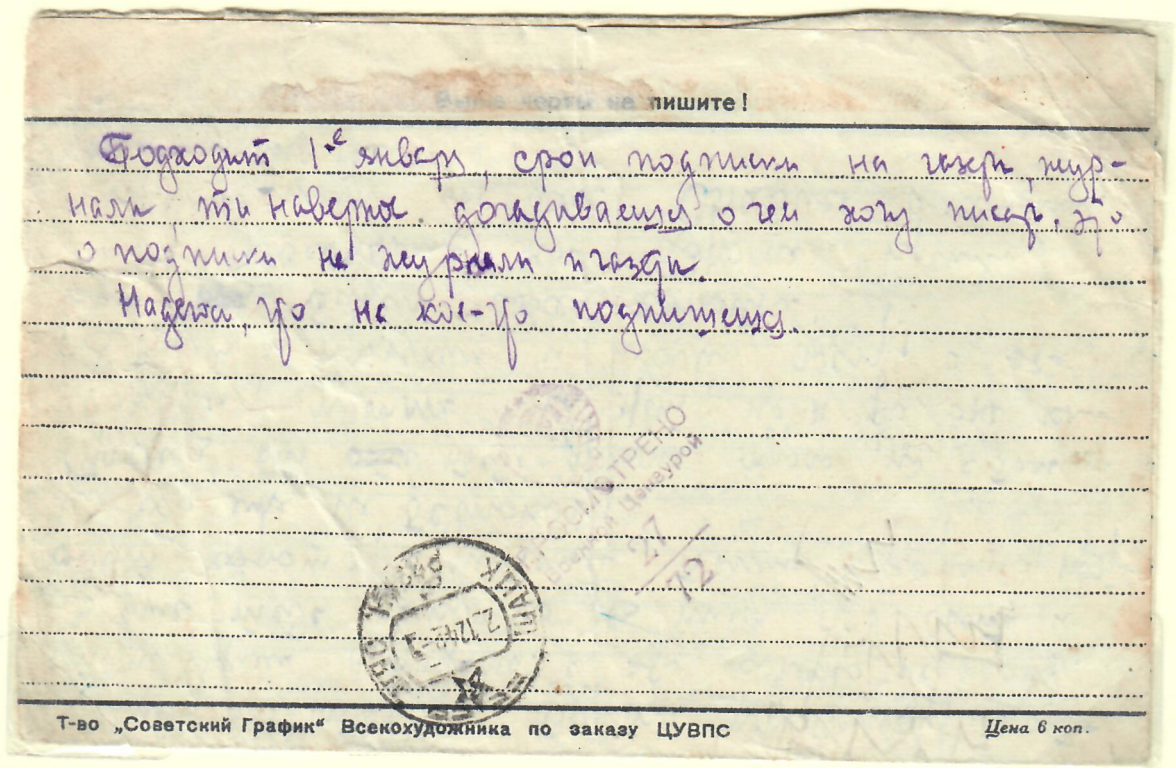 Выше черты не пишите!
Подходит 1е январ, срок подписки на газеты, жур-
налы, ты наверное догадываешся о чем хочу писать, это
о подписки на журналы и газеты.
Надеюсь, что на кое-что подпишешся.
ПРОСМОТРЕНО
Военной Цензурой
27
72
2.12.42
Т-во „Советский График“ Всекохудожника по заказу ЦУВПС
Цена 6 коп.